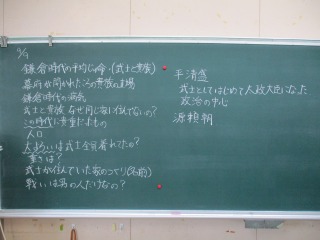 9/9
鎌倉時代の平均じゅ命・(武士と貴族)
幕府が開かれたころの貴族の立場
鎌倉時代の病気
武士と貴族 なぜ同じ家に住んでないの?
この時代に貴重だったもの
人口
大よろいは武士全員着れてたの?
重さは?
武士が住んでいた家のつくり(名前)
戦いは男の人だけなの?
平清盛
武士としてはじめて太政大臣になった
政治の中心
源頼朝